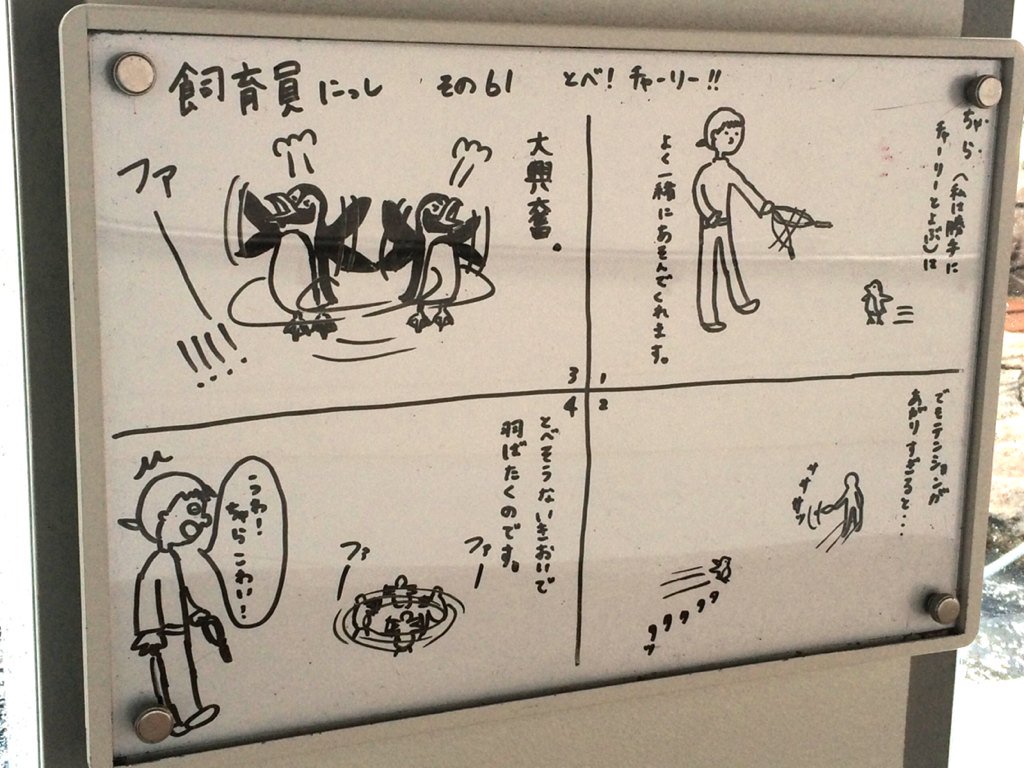 飼育員にっし その61 とべ！チャーリー!!
1
ちゃら（私は勝手に
チャーリーとよぶ）は
よく一緒にあそんでくれます。
2
でもテンションが
あがりすぎると…
ササササッ
3
大興奮。
ファ
!!!!!
4
とべそうないきおいで
羽ばたくのです。
ファ
ファ
うわ！
ちゃらこわい！